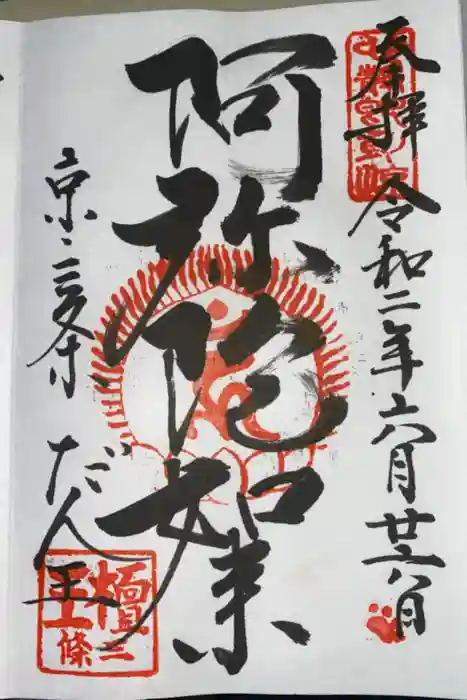 奉拝 令和二年六月廿六日
阿弥陀如来
京・三条 だん王
檀王
三條